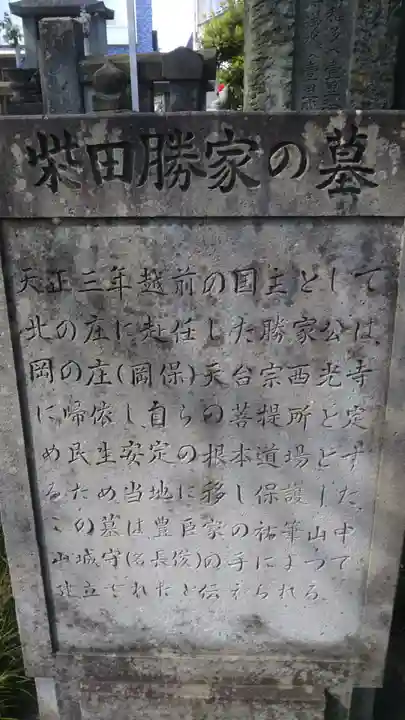 柴田勝家の墓
天正三年越前の国主として
北の庄に赴任した勝家公は、
岡の庄(岡保)天台宗西光寺
に帰依し自らの菩提所と定
め民生安定の根本道場とす
るため当地に移し保護した。
この墓は、豊臣家の祐筆山中
山城守(名長俊)の手によつて
建立されたと伝えられる。